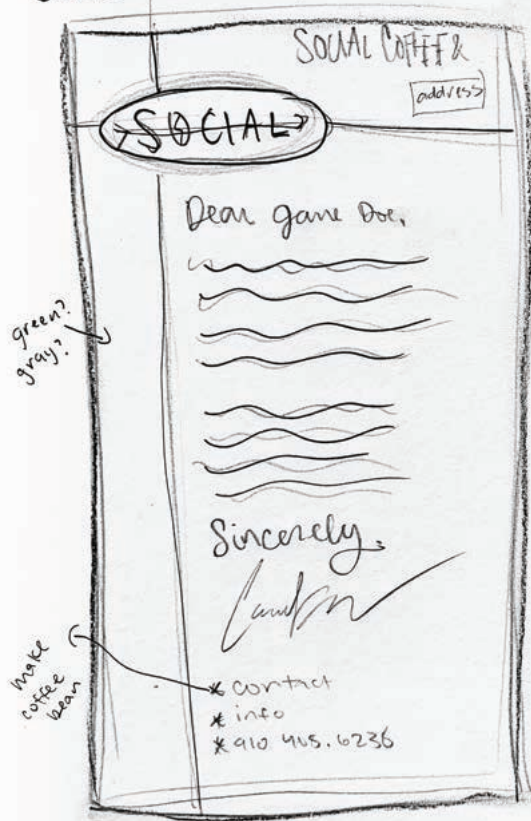 SOCIAL COFFEE &
address
SOCIAL
Dear Jane Doe,
green?
gray?
Sincerely,
make
coffee
bean
* contact
* info
* 910 465.6236